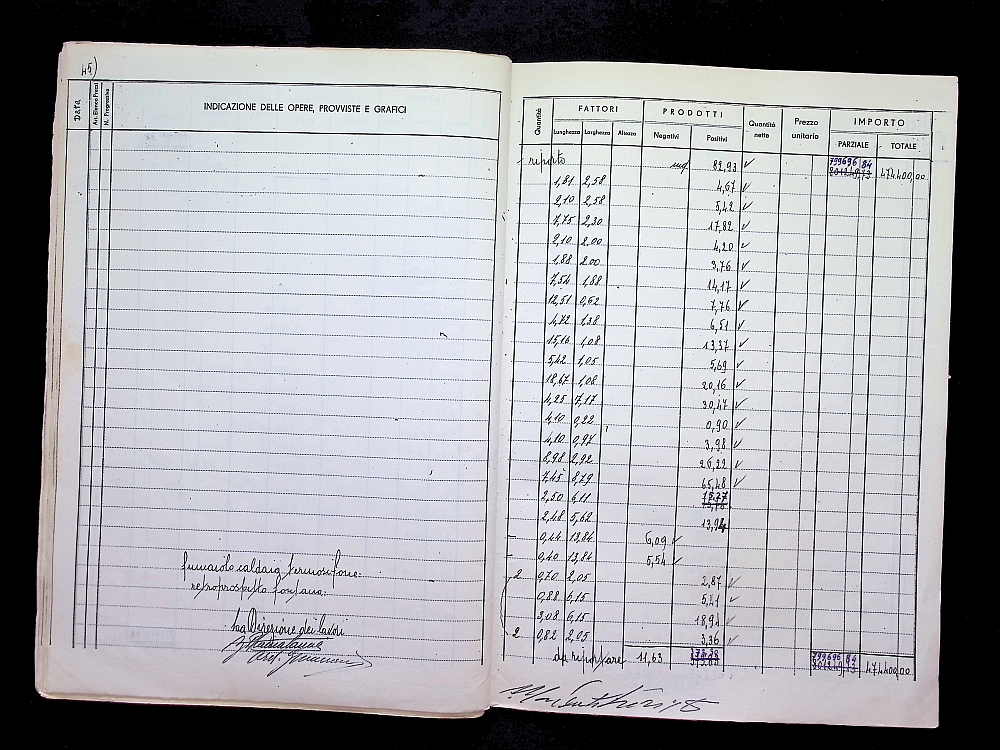 45)
Data
Art. Elenco Prezzi
N. Progressivo
INDICAZIONE DELLE OPERE, PROVVISTE E GRAFICI
La Direzione dei lavori
Quantità
FATTORI
PRODOTTI
Quantità nette
Prezzo unitario
IMPORTO
Lunghezza Larghezza Altezza
Negativi Positivi
PARZIALE TOTALE
riporto mq 82,93 799696 84 474400,00
1,81 2,58 4,67
2,10 2,58 5,42
7,75 2,30 17,82
2,10 2.00 4,20
1,88 2.00 3,76
7,54 1,88 14,17
12,51 0,62 7,76
4,72 1,38 6,51
15,16 1,08 13,37
5,42 1,05 5,69
18,67 1,08 20,16
4,25 7,17 30,47
4,10 0,22 0,90
4,10 0,97 3,98
8,98 2,92 26,22
7,45 8,79 65,48
2,50 6,11 15,27
2,48 5,62 13,94
0,44 13,84 6,09
0,40 13,84 5,54
2 0,70 2,05 2,87
0,88 6,15 5,41
3,08 6,15 18,94
2 0,82 2,05 3,36
da riportare 11,63 799696 84 474400,00